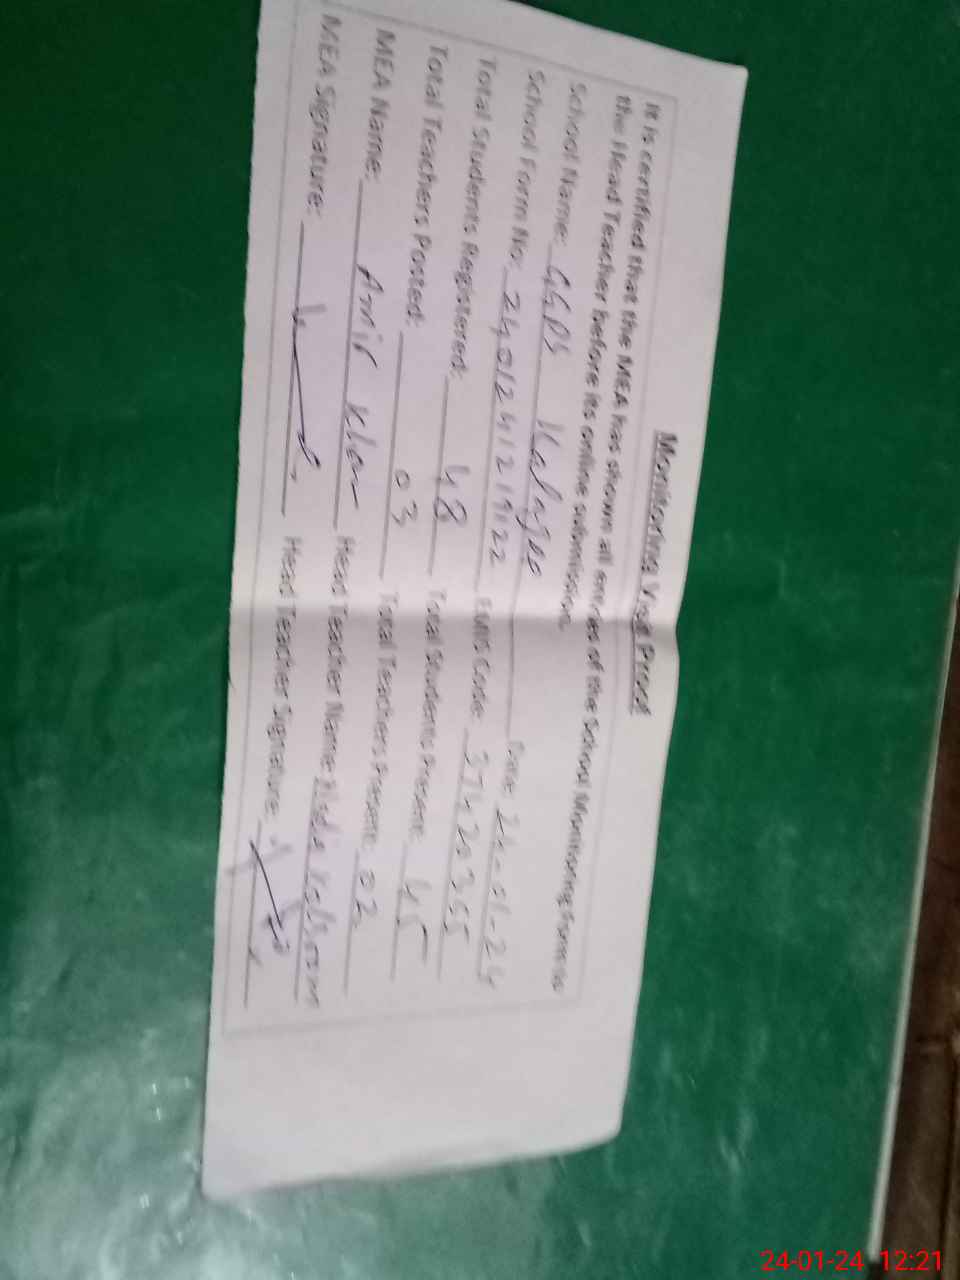 Monitoring Visit Proof
It is certified that the MEA has shown all entries of the School Monitoring Form to
the Head Teacher before its online submission.
School Name: GGPS Date: 24-01-24
School Form No: EMIS Code:
Total Students Registered: 48 Total Students Present: 45
Total Teachers Posted: 03 Total Teachers Present: 02
MEA Name: Amir Khan Head Teacher Name:
MEA Signature: Head Teacher Signature:
24-01-24 12:21